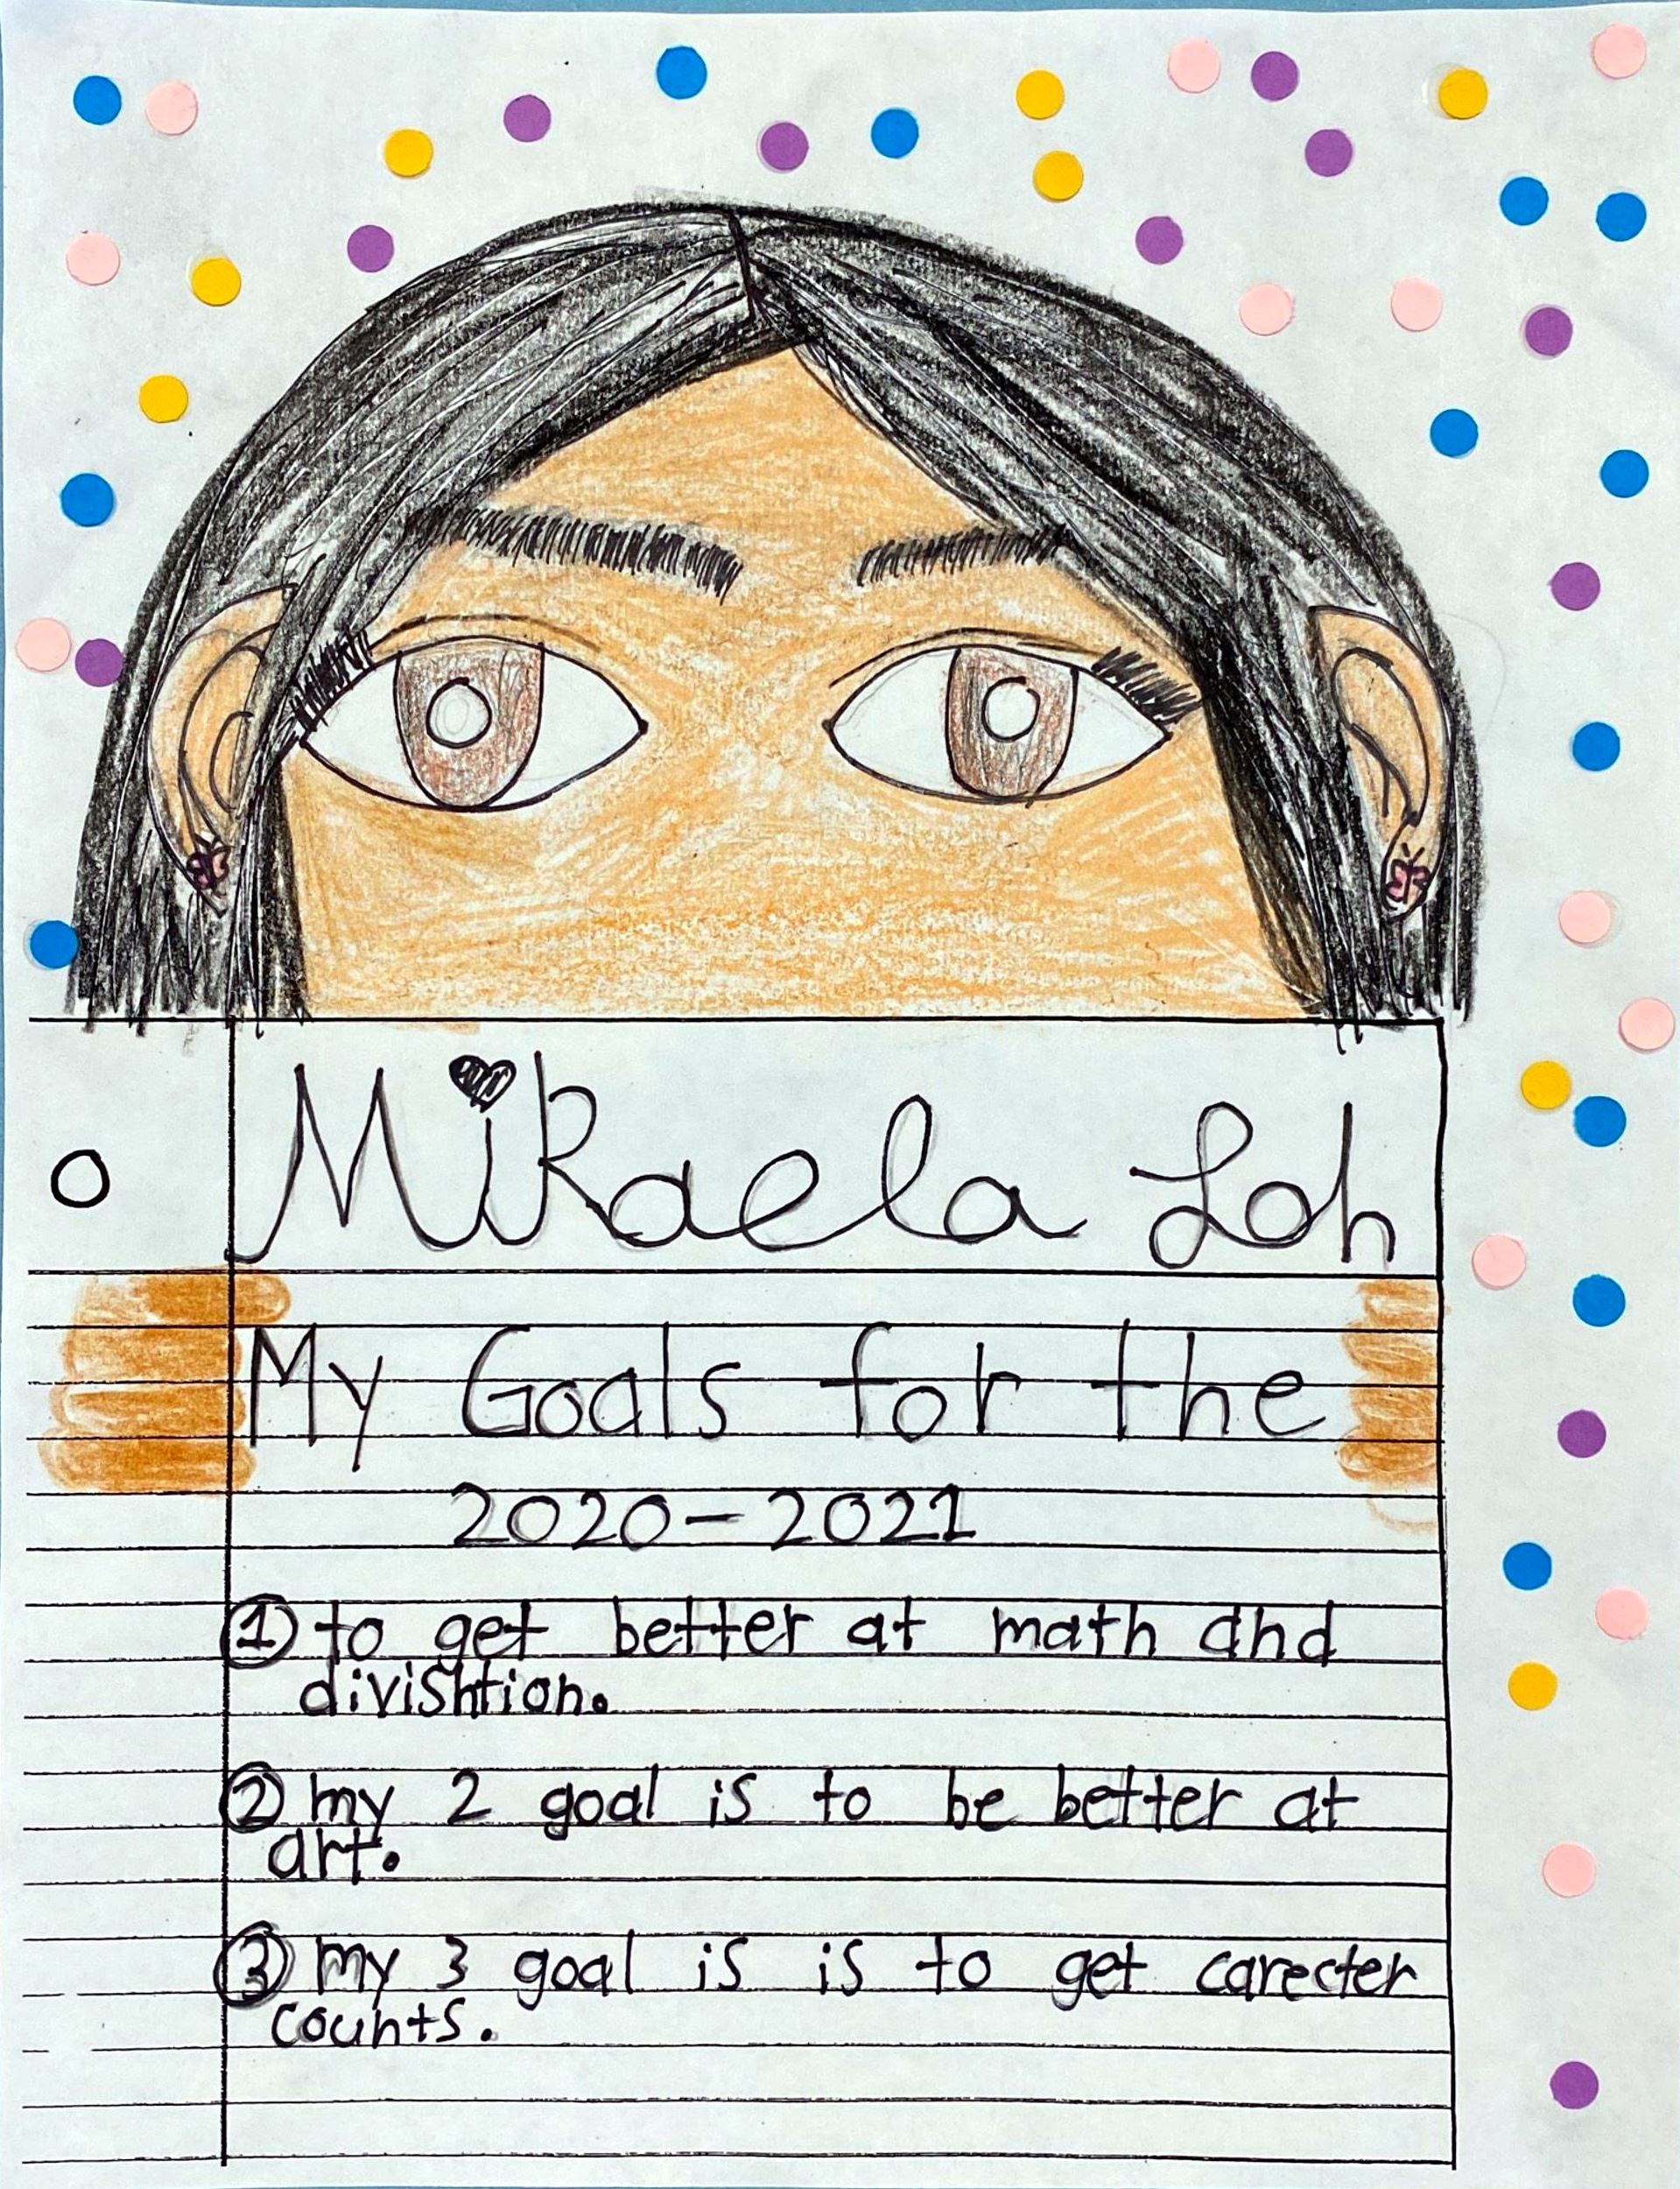 Mikaela Loh
My Goals for the
2020-2021
① to get better at math and
divishtion.
② my 2 goal is to be better at
art.
③ my 3 goal is is to get carecter
counts.